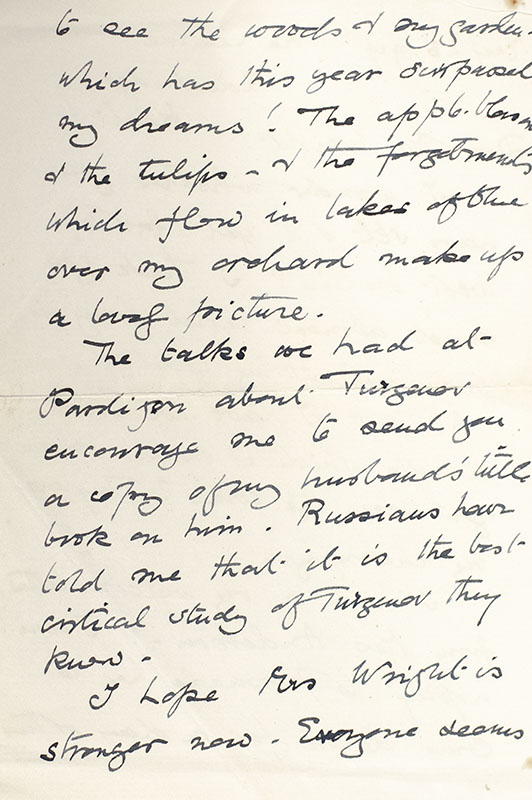 to see the woods & my garden
which has this year surpassed
my dreams! The apple-blossom
& the tulips - & the forgetmenots
which flow in lakes of blue
over my orchard make up
a lovely picture.
The talks we had at
Pardigon about Turgenev
encourage me to send you
a copy of my husband's little
book on him. Russians have
told me that it is the best
critical study of Turgenev they
know.
I hope Mrs Wright is
stronger now. Everyone seems